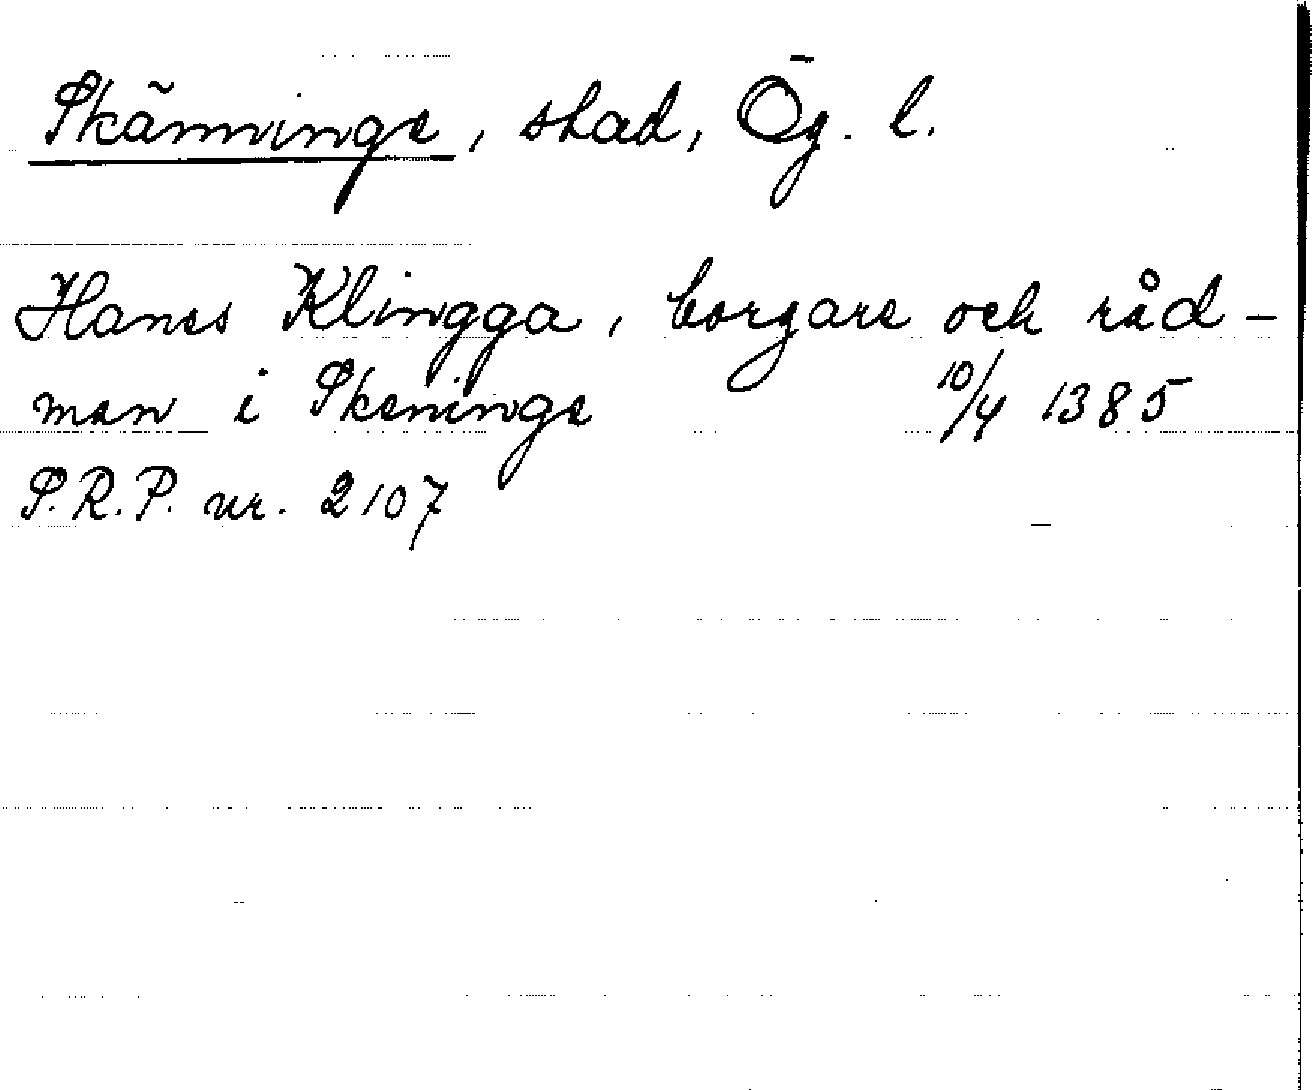 Skänninge, stad, Ög. l.
Hanes Klingga, borgare och råd-
man i Skeninge 10/4 1385
S.R.P. nr. 2107